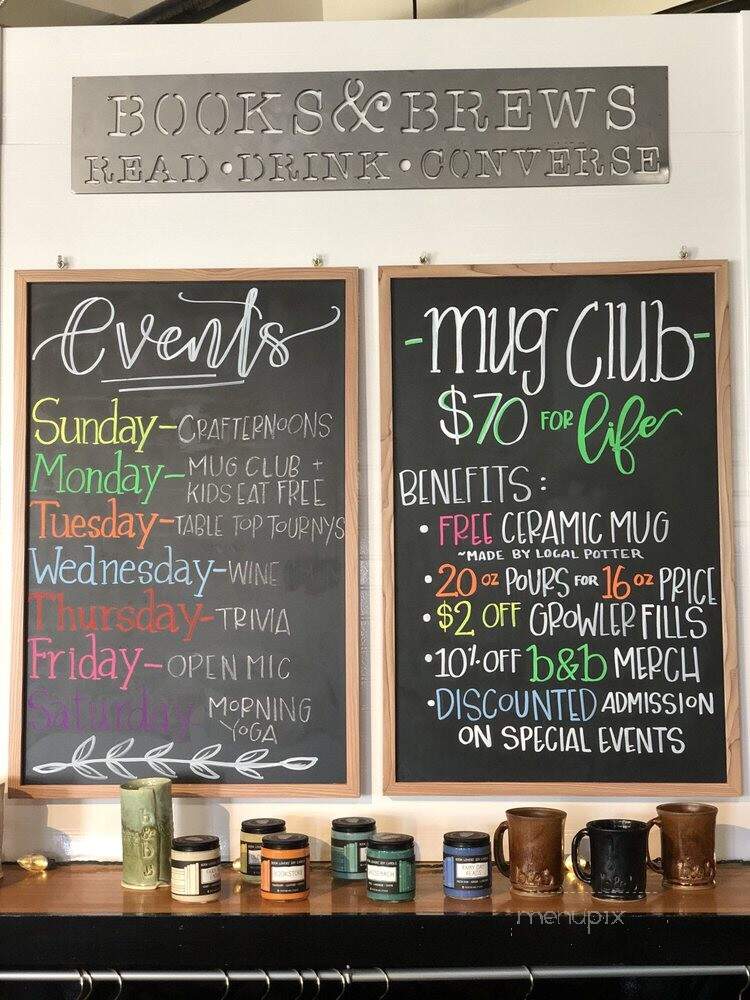 BOOKS & BREWS
READ • DRINK • CONVERSE
events
Sunday - CRAFTERNOONS
Monday - MUG CLUB +
KIDS EAT FREE
Tuesday - TABLE TOP TOURNYS
Wednesday - WINE
Thursday - TRIVIA
Friday - OPEN MIC
Saturday - MORNING
YOGA
- mug club -
$70 FOR life
BENEFITS:
• FREE CERAMIC MUG
~MADE BY LOCAL POTTER
• 20 OZ POURS FOR 16 OZ PRICE
• $2 OFF GROWLER FILLS
• 10% OFF b&b MERCH
• DISCOUNTED ADMISSION
ON SPECIAL EVENTS
b&b
menupix